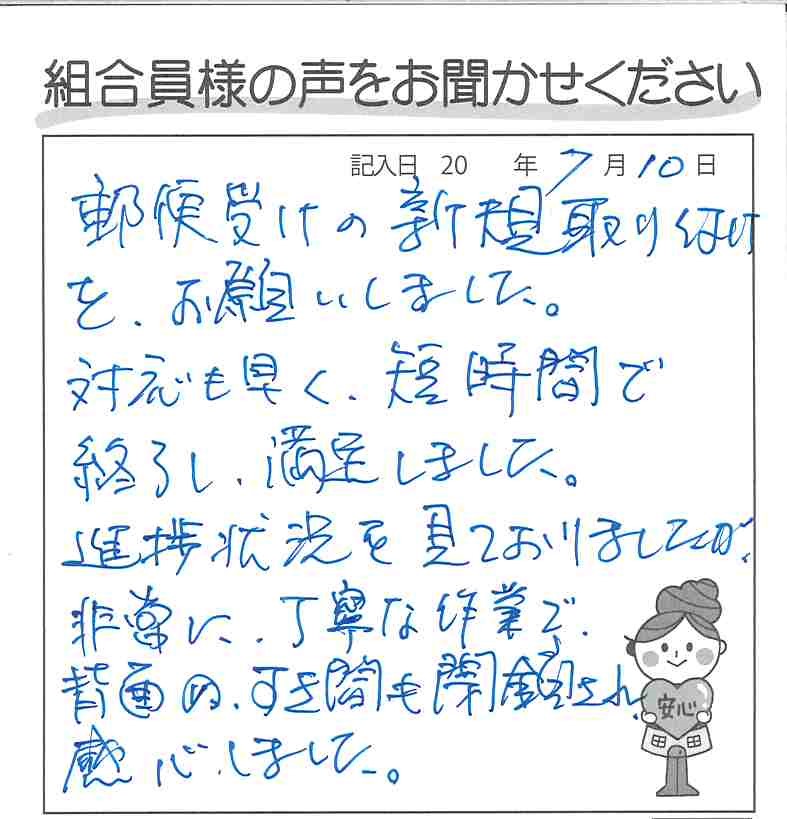 組合員様の声をお聞かせください
記入日 20 年 7月10日
郵便受けの新規取り付け
を、お願いしました。
対応も早く、短時間で
終了し、満足しました。
進捗状況を見ておりましたが、
非常に、丁寧な作業で、
背面の、すき間も閉鎖され、
感心しました。
安心